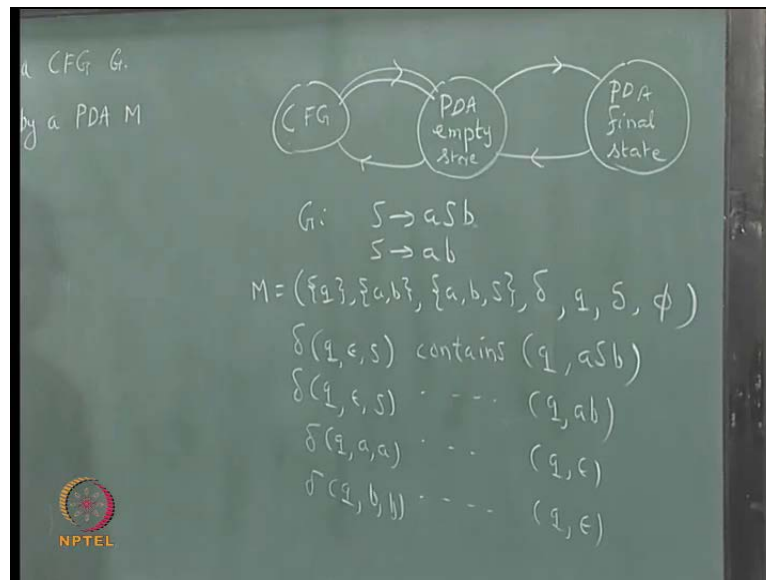 a CFG G.
by a PDA M
CFG
PDA
empty
store
PDA
final
state
G: S → aSb
S → ab
M = ({q}, {a,b}, {a,b,S}, δ, q, S, ϕ)
δ(q, ϵ, S) contains (q, aSb)
δ(q, ϵ, S) . ---- (q, ab)
δ(q, a, a) . -- (q, ϵ)
δ(q, b, b) . . --- (q, ϵ)
NPTEL